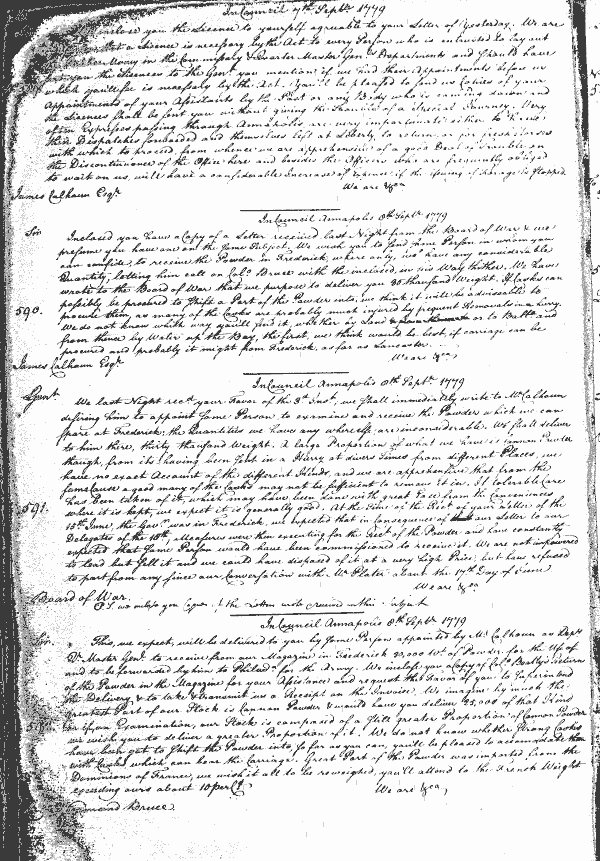 In Council 7th Septr 1779
enclose you the Licence to yourself agreable to your Letter of Yesterday. We are
that a Licence is necessary by the Act to every Person who is entrusted to lay out
Money in the Commissary & Quarter Master Genl Departments and shall have
you the Licences to the Gent you mention if we had their Appointments before us
which you'll see is necessary by the Act. You'll be pleased to send us Copies of your
Appointments of your Assistants by the Post or any Body who is coming down and
the Licences shall be sent you without giving the trouble of a Special Journey. Very
often Expresses passing through Annapolis are very importunate either to have
their Dispatches forwarded and themselves left at Liberty to return, or for fresh Horses
with which to proceed, from whence we are apprehensive of a good Deal of Trouble on
the Discontinuance of the Office here and besides the Officers who are frequently obliged
to wait on us, will have a considerable Increase of Expence if the issuing of forage is stopped
We are &ca
James Calhoun Esqr
In Council Annapolis 8th Septr 1779
Sir
Inclosed you have a Copy of a Letter received last Night from the Board of War & we
presume you have one on the same Subject. We wish you to send some Person in whom you
can confide, to receive the Powder in Frederick, where only, we have any considerable
Quantity, letting him call on Colo Bruce with the inclosed, in his Way thither. We have
wrote to the Board of War that we purpose to deliver you 30 thousand Weight. If Casks can
possibly be procured to shift a Part of the Powder into, we think it will be adviseable to
procure them, as many of the Casks are probably much injured by frequent Removals in a hurry.
590.
We do not know which way you'll send it, whether by Land or to Balto and
from thence by Water up the Bay, the first, we think would be best, if carriage can be
procured and probably it might from Frederick, as far as Lancaster.
We are &ca
James Calhoun Esqr
In Council Annapolis 8th Septr 1779
Gent.
We last Night recd your Favor of the 3d Inst, we shall immediately write to Mr Calhoun
desiring him to appoint some Person to examine and receive the Powder which we can
spare at Frederick; the Quantities we have any where else, are inconsiderable. We shall deliver
to him there, thirty thousand Weight. A large Proportion of what we have is Cannon Powder
though, from its having been sent in a Hurry at divers Times from different Places, we
have no exact Account of the different Kinds, and we are apprehensive that from the
same cause a good many of the Casks may not be sufficient to remove it in. If tolerable Care
has been taken of it, which may have been done with great Ease from the Conveniences
where it is kept, we expect it is generally good. At the Time of the Rect of your Letter of the
591.
15th June, the Govr was in Frederick, we expected that in Consequence of our Letter to our
Delegates of the 18th, Measures were then executing for the Rect of the Powder and have constantly
expected that some Person would have been commissioned to receive it. We are not impowered
to lend but sell it and we could have disposed of it at a very high Price, but have refused
to part from any since our Conversation with Mr Plater about the 17th Day of June
We are &ca
Board of War.
P.S. we inclose you Copies of the Letters
In Council Annapolis 8th Septr 1779
Sir.
This, we expect, will be delivered to you by some Person appointed by Mr Calhoun as Depy
Qr Master Genl to receive from our Magazine in Frederick 30,000 Wt of Powder for the Use of
and to be forwarded by him to Philada for the Army. We inclose you a Copy of Colo Beatty's Return
of the Powder in the Magazine for your Assistance and request the Favor of you to superintend
the Delivery, & to take & transmit us a Receipt on the Invoice. We imagine by much the
greatest Part of our Stock is Cannon Powder & would have you deliver 25,000 of that Kind
or if, on Examination, our Stock is composed of a still greater Proportion of Cannon Powder
we wish you to deliver a greater Proportion of it. We do not know whether strong Casks
have been got to shift the Powder into, so far as you can, you'll be pleased to accommodate them
with such which can bear the Carriage. Great Part of the Powder was imported from the
Dominions of France, we wish it all to be reweighed, you'll attend to the French Weight
exceeding ours about 10 per Ct.
We are &ca,
Bruce